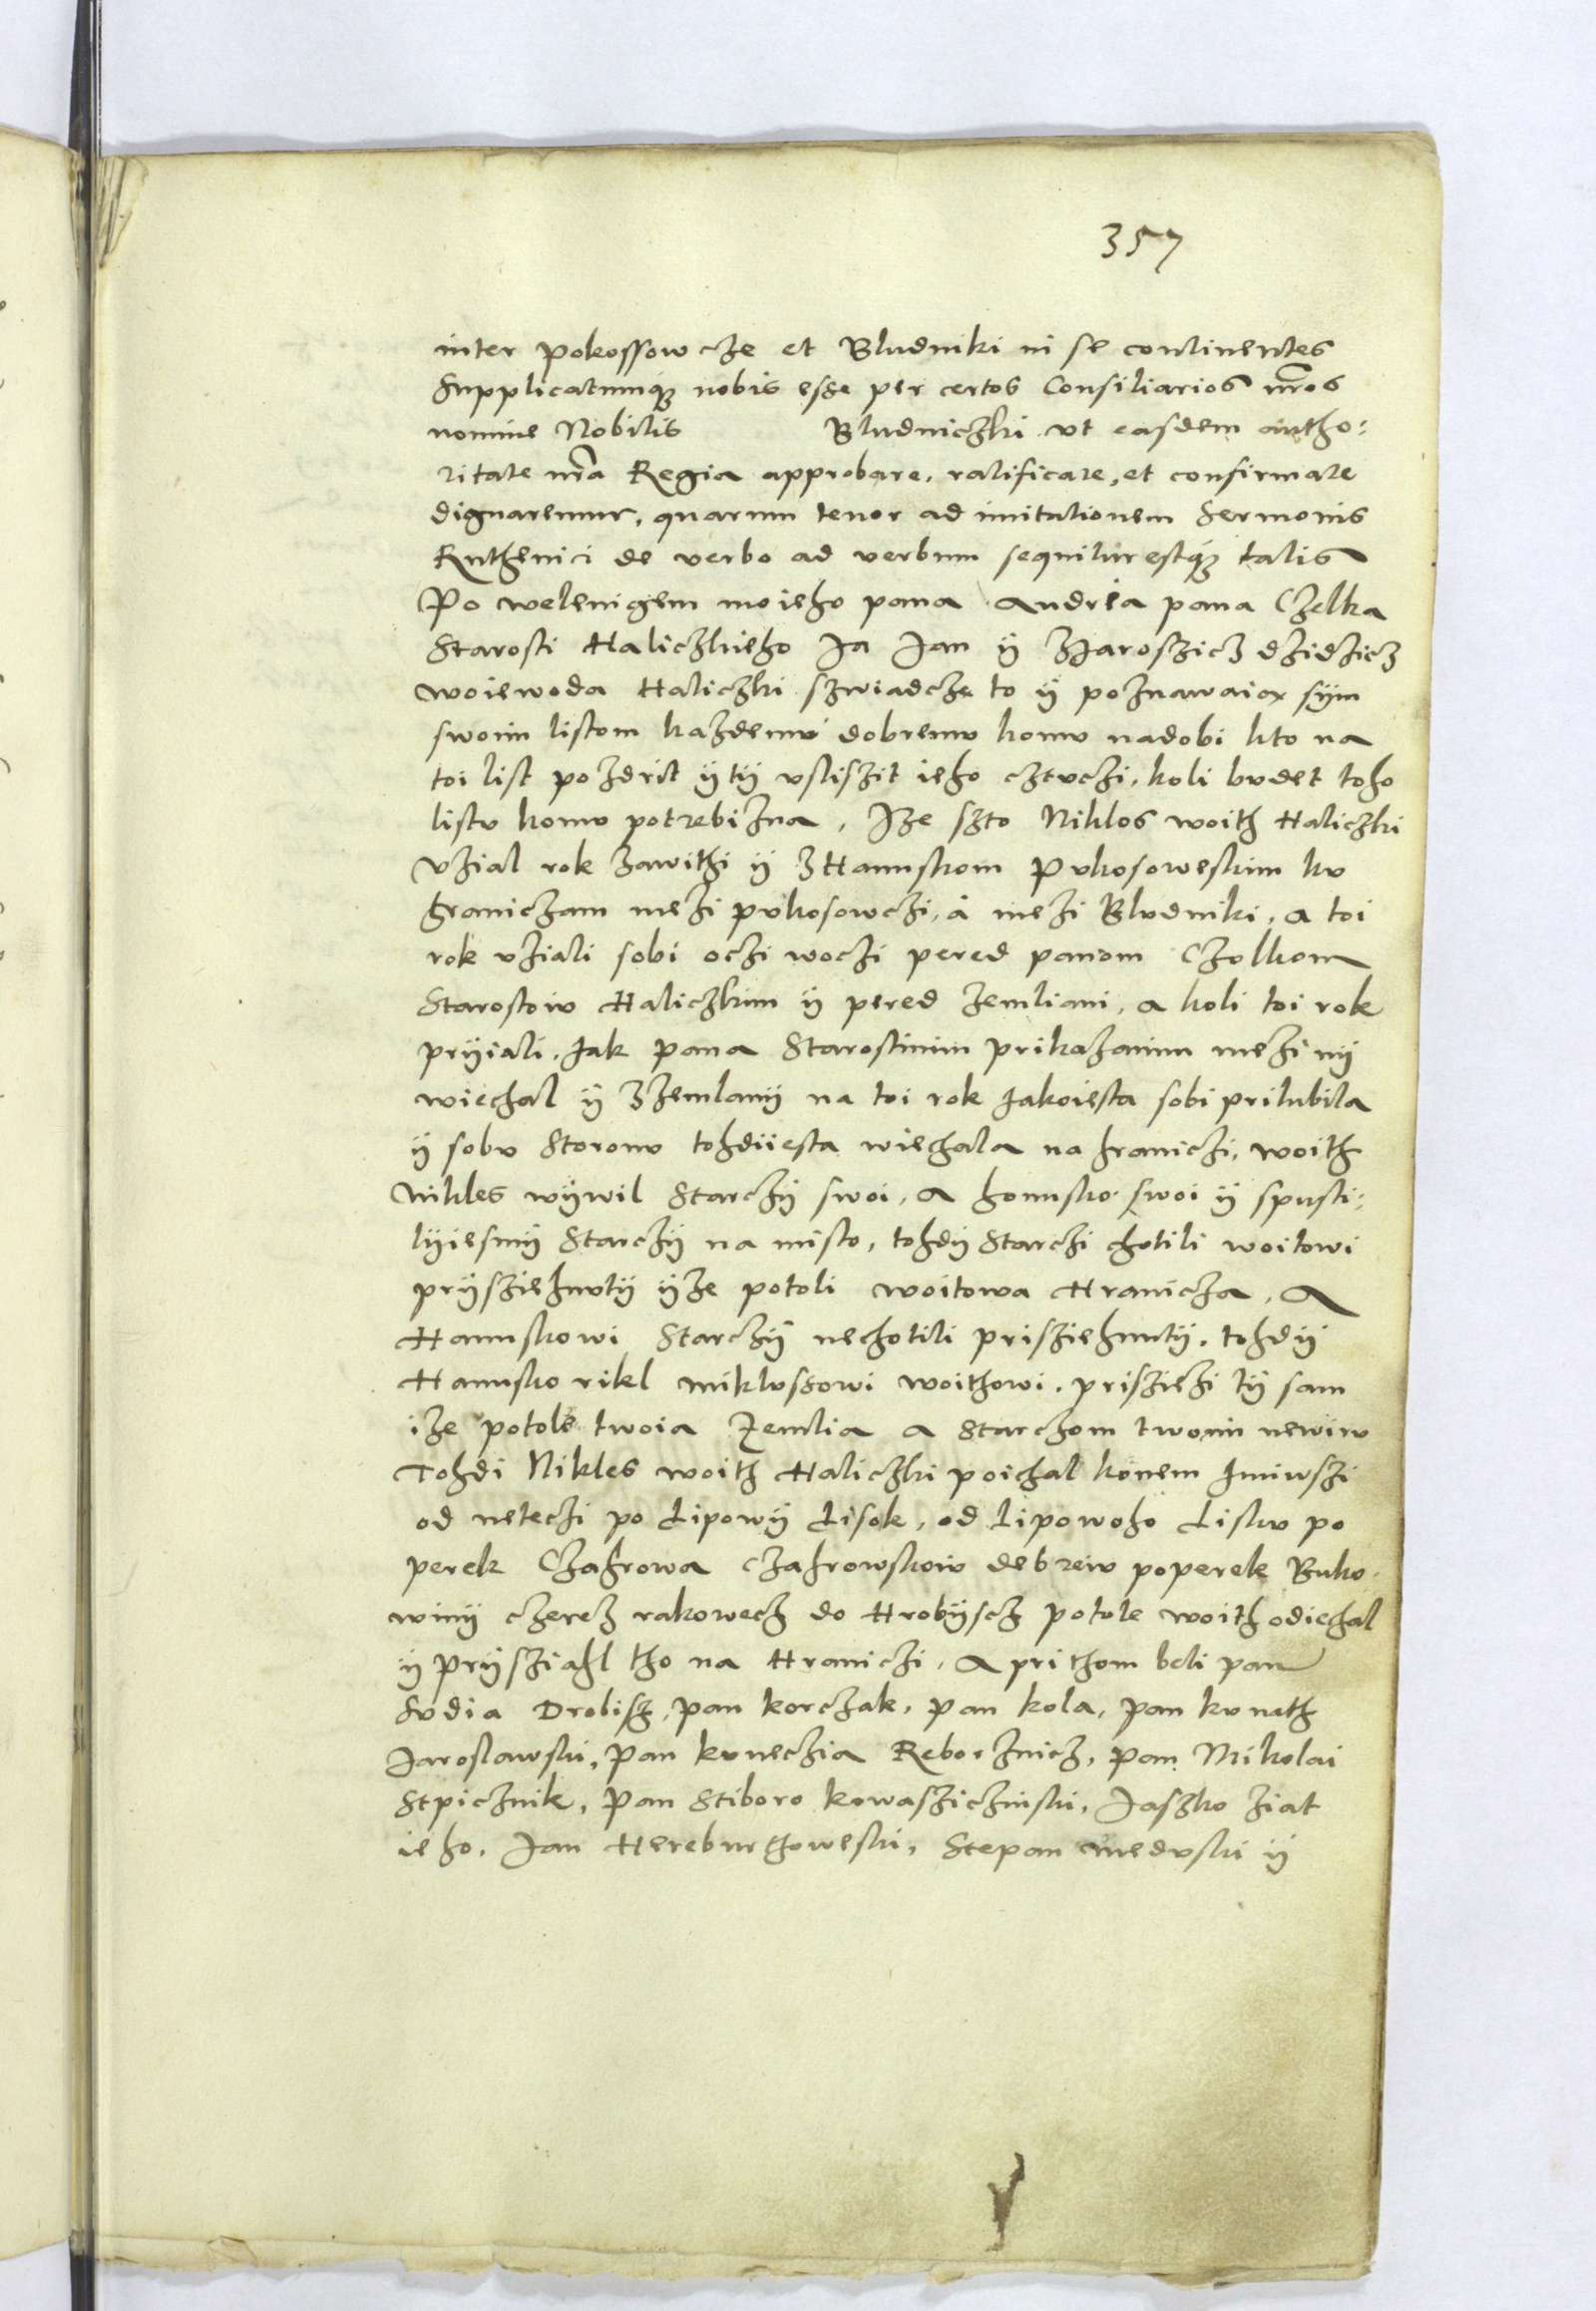 357
inter Pokossowcze et Bludniki in se continentes
Supplicatumq3 nobis esse per certos Consiliarios nr̃os
nomine Nobilis Bludniczki vt easdem autho:
ritate nr̃a Regia approbare, ratificare, et confirmare
dignaremur, quarum tenor ad imitationem Sermonis
Ruthenici de verbo ad verbum sequitur estq3 talis
Po welenigem moieho pana Andrea pana Czelka
Starosti Haliczkieho Ja Jan ÿ Zjaroszicz dzidzicz
woiewoda Haliczki szwiadcze to ÿ poznawaiox sÿm
swoim listom kazdemu dobremu komu nadobi kto na
toi list pozdrit ÿ tÿ vsliszit ieho cztuczi, koli budet toho
listu komu potrebizna, Jze szto Niklos woith Haliczki
Vzial rok zawithi ÿ z Hannskom Pukosoweskim ku
graniczam mezi pukosowczi, a mezi Bludniki, a toi
rok vziali sobi oczi woczi pered panom Czolkom
Starostow Haliczkim ÿ pered zemliani, a koli toi rok
prÿiali, Jak pana Starostinim prikazanim mezi nÿ
wiechal ÿ z zemlanÿ na toi rok Jakoiesta sobi prilubila
ÿ sobu Storonu tohdÿiesta wiechala na hraniczi, woith
Nikles wÿwil Starczÿ swoi, A honusko swoi ÿ spusti:
lÿiesmÿ Starczÿ na misto, tohdÿ Starczi chotili woitowi
prÿsziehnutÿ ÿze potoli woitowa Hranicza, A
Hannskowi Starczÿ nechotili prisziehnutÿ, tohdÿ
Hannsko rikl niklussowi woithowi, prisziehi tÿ sam
ize potole twoia Zemlia a Starczom twoim newiw
Tohdi Nikles woith Haliczki poichal konem Jmiwszi
od neteczi po Lipowÿ Lisok, od Lipowoho Lisku po
perek Czahrowa czahrowskow debrew poperek Buko-
winÿ czerez rakowecz do Hrobÿscz potole woith odiechal
ÿ prÿsziahl tho na Hraniczi, A prithom beli pan
Sudia Drobisz, pan korczak, pan kola, pan kuneth
Jaroslawski, pan kuneczia Reborznicz, pan Mikolai
Stpicznik, pan Stiboro kowaszicznski, Jaszko ziat
ieho, Jan Hereburthoweski, Stepan Meduski ÿ